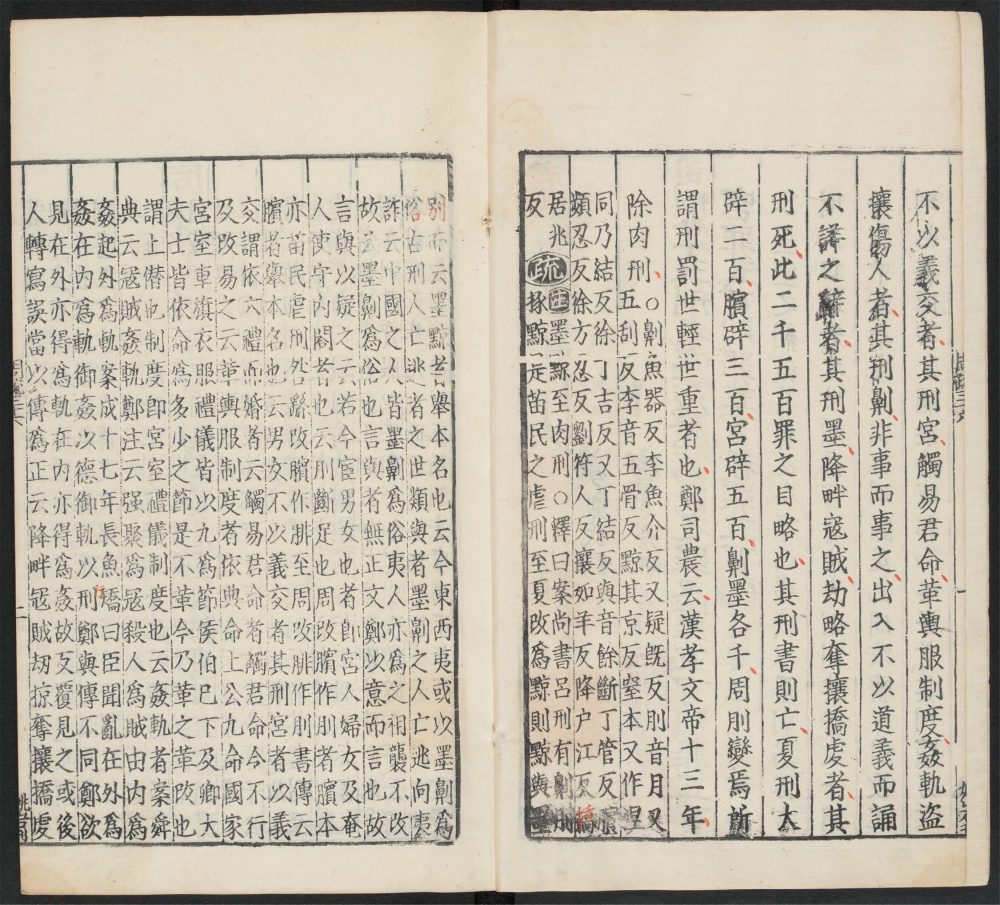 不以義交者其刑宮觸易君命革輿服制度姦軌盜
攘傷人者其刑劓非事而事之出入不以道義而誦
不詳之辭者其刑墨降畔寇賊劫略奪攘撟虔者其
刑死此二千五百罪之目略也其刑書則亡夏刑大
辟二百臏辟三百宮辟五百劓墨各千周則變焉所
謂刑罰世輕世重者也鄭司農云漢孝文帝十三年
除肉刑
○劓魚器反李魚介反又疑既反刖音月又
五刮反李音五骨反黥其京反窒本又作涅
同乃結反徐丁吉反又丁結反與音餘斷丁管反
頻忍反徐方忍反劉符人反攘如羊反降户江反撟
居兆反
疏
注墨至肉刑○釋曰案尚書呂刑有劓刖
椓黥是苗民之虐刑至夏改為黥則黥與墨
別而云墨黥者舉本名也云今東西夷或以墨劓為
俗古刑人亡逃者之世類與者墨劓之人亡逃向夷
詐云中國之人皆墨劓為俗夷人亦為之相襲不改
故云墨劓為俗也言與者無正文鄭以意而言也故
言與以疑之云若今宦男女也者即宮人婦女及奄
人使守內閣者也云刖斷足也周改臏作刖者臏本
亦苗民虐刑咎繇改臏作腓至周改腓作刖書傳云
臏者舉本名也云男女不以義交者其刑宮者以義
交謂依六禮而婚者云觸易君命者觸君命令不行
及改易之云革輿服制度者依典命上公九命國家
宮室車旗衣服禮儀皆以九為節侯伯已下及卿大
夫士皆依命為多少之節是不革今乃革之革改也
謂上僣也制度即宮室禮儀制度也云姦軌者案舜
典云寇賊姦軌鄭注云强聚為寇殺人為賊由內為
姦起外為軌案成十七年長魚矯曰臣聞亂在外為
姦在內為軌御姦以德御軌以刑鄭與傳不同鄭欲
見在外亦得為軌在內亦得為姦故反覆見之或後
人轉寫誤當以傳為正云降畔冦賊劫掠奪攘撟虔